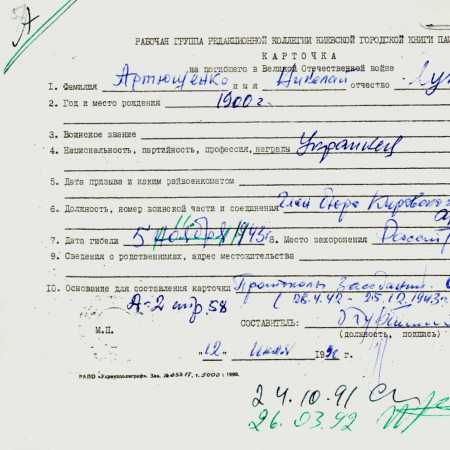 А
РАБОЧАЯ ГРУППА РЕДАКЦИОННОЙ КОЛЛЕГИИ КИЕВСКОЙ ГОРОДСКОЙ КНИГИ ПАМ
КАРТОЧКА
на погибшего в Великой Отечественной войне
1. Фамилия Артющенко имя Николай отчество
2. Год и место рождения 1900 г.
3. Воинское звание
4. Национальность, партийность, профессия, награды Украинец
5. Дата призыва и каким райвоенкоматом
6. Должность, номер воинской части и соединения Член бюро Кировского
7. Дата гибели 5 ноября 1943г 8. Место захоронения Расстр
9. Сведения о родственниках, адрес местожительства
10. Основание для составления карточки Протоколы заседаний
Д-2 стр. 58 (28.4.42 - 25.12.1943г
М.П. СОСТАВИТЕЛЬ:
(должность, подпись)
"12" июля 199 г.
РАПО «Укрвузполиграф». Зак. т. 5000 1990.
24.10.91
26.03.92